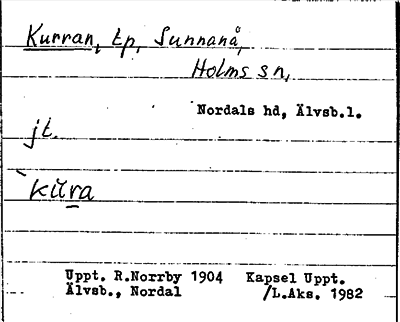 Kurran, tp, Sunnanå,
Holms sn,
Nordals hd, Älvsb.l.
jt.
`kŭra
Uppt. R.Norrby 1904 Kapsel Uppt.
Älvsb., Nordal /L.Aks. 1982